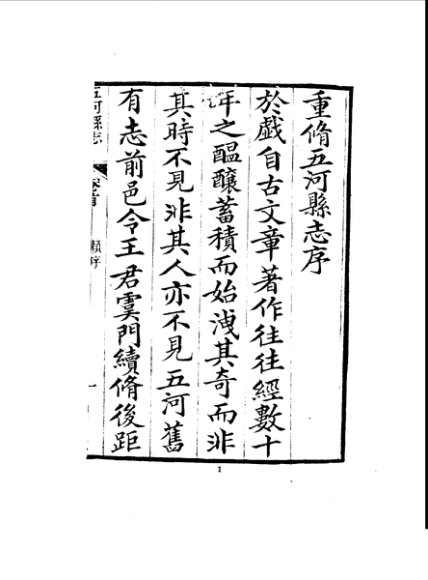 重脩五河縣志序
於戲自古文章著作往往經數十
年之醞釀蓄積而始洩其奇而非
其時不見非其人亦不見五河舊
有志前邑令王君霙門續脩後距
五河縣志
卷首
序
一
1